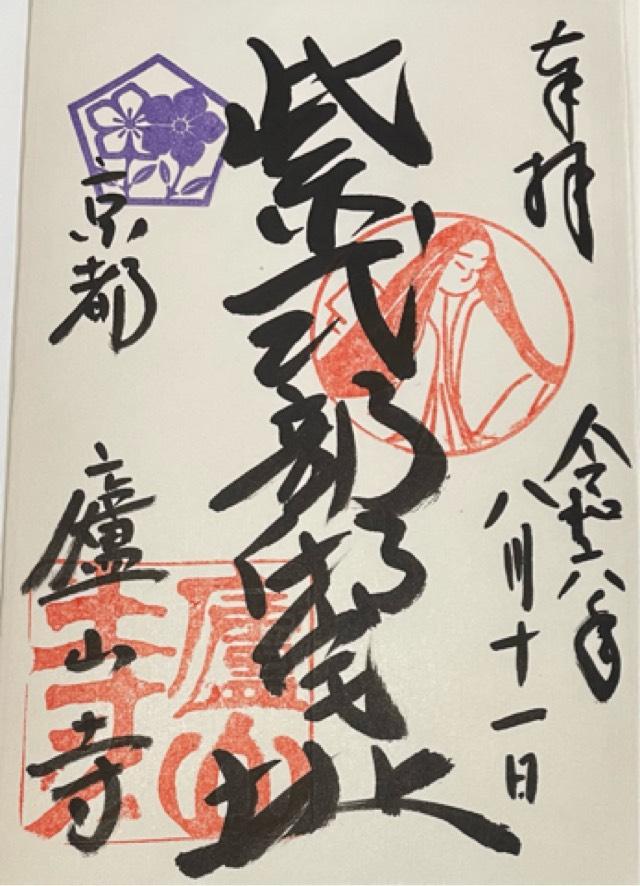 奉拝
令和六年
八月十一日
紫式部邸宅址
京都
廬山寺
廬山寺